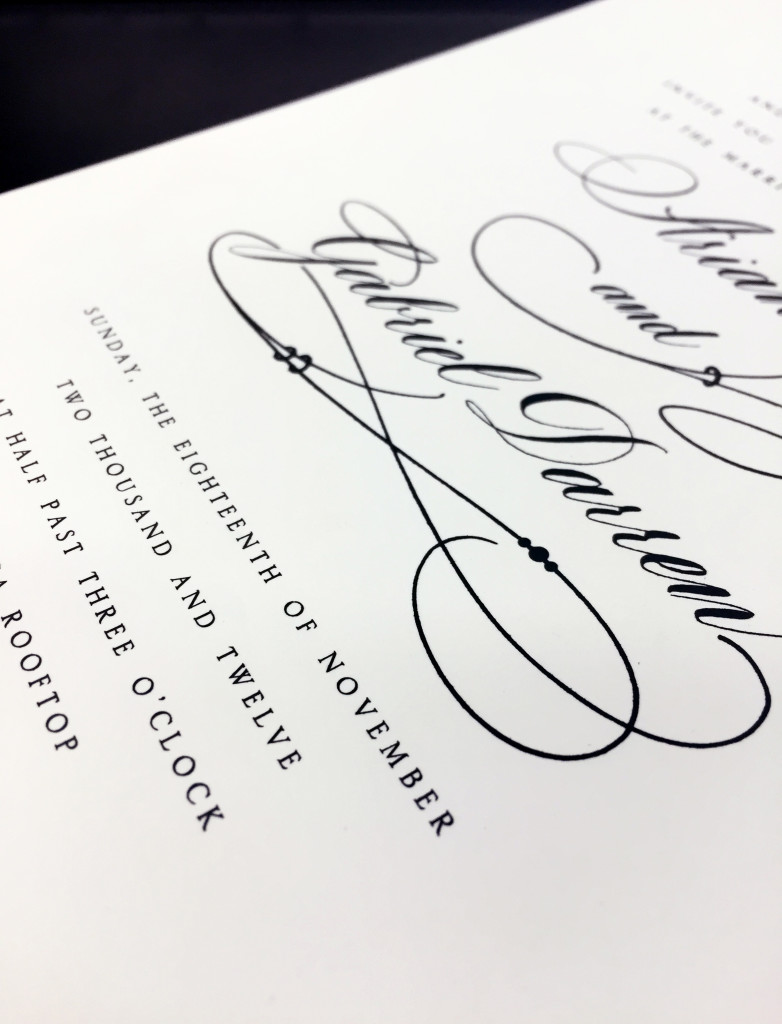 AND
INVITE YOU
AT THE
and
Gabriel Darren
SUNDAY, THE EIGHTEENTH OF NOVEMBER
TWO THOUSAND AND TWELVE
AT HALF PAST THREE O'CLOCK
ROOFTOP